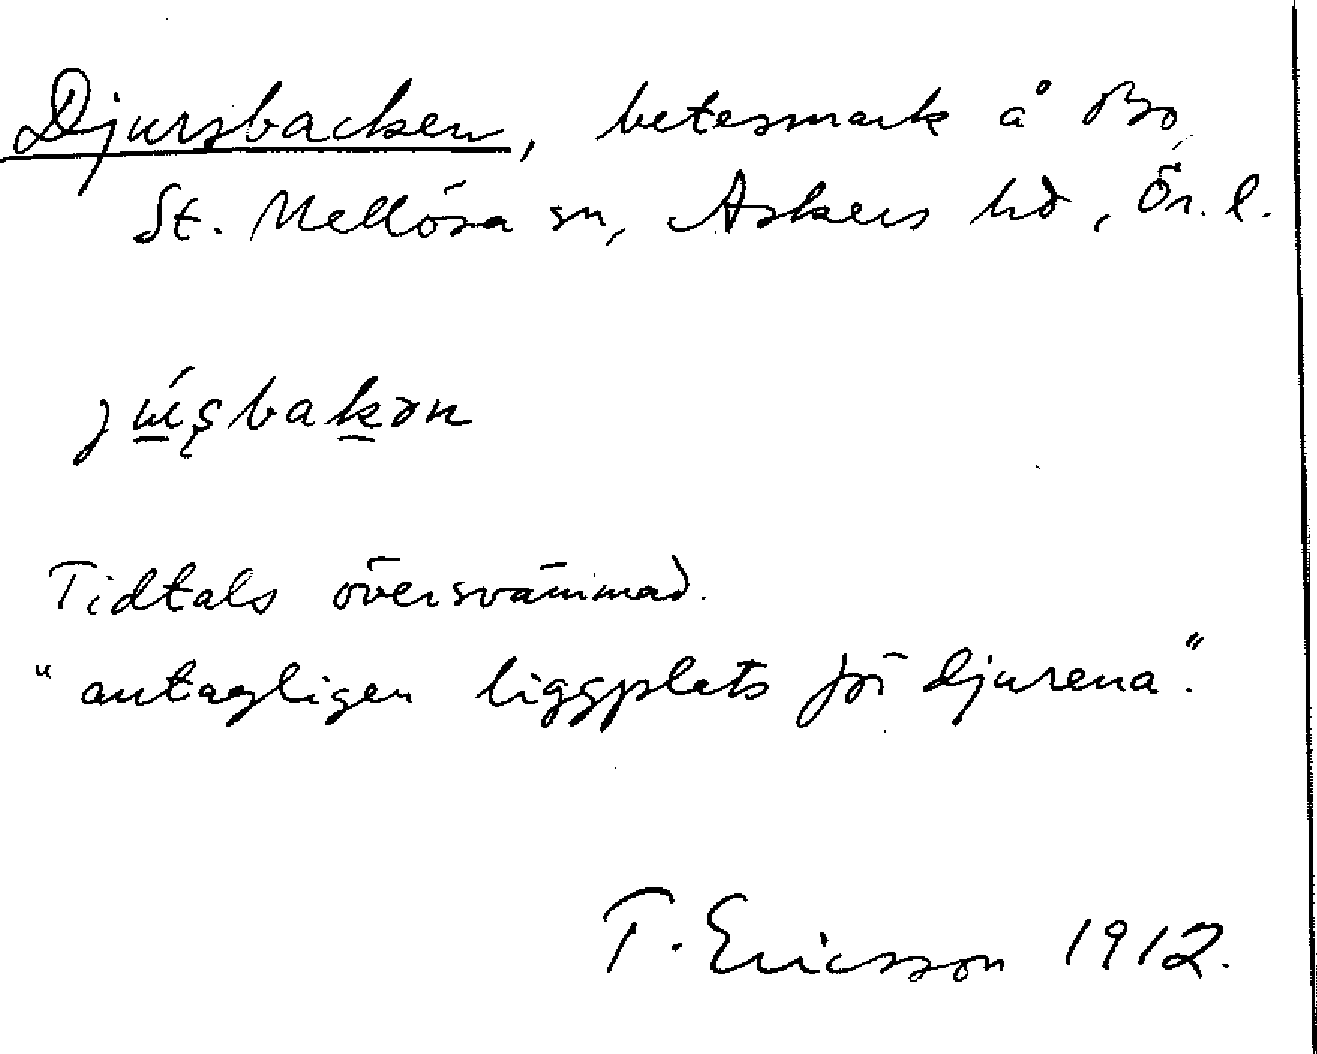 Djursbacken, betesmark å Bo,
St. Mellösa sn, Askers hd, Ör. l.
Tidtals översvämmad.
"antagligen liggplats för djurena".
T. Ericsson 1912.